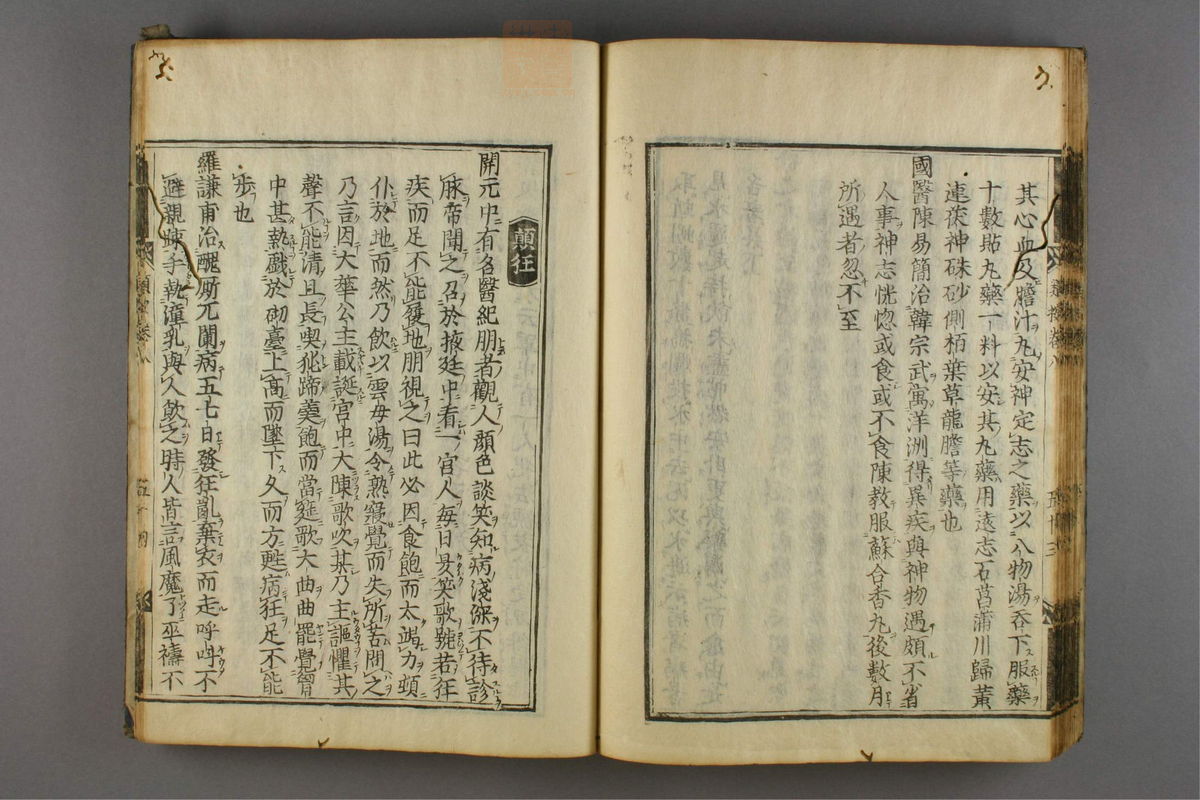 其心血及膽汁丸安神定志之藥以八物湯吞下服藥
十數貼丸藥一料以安其丸藥用遠志石菖蒲川歸黄
連茯神硃砂側栢葉草龍膽等藥也
國醫陳易簡治韓宗武寓洋洲得異疾與神物遇頗不省
人事神志恍惚或食或不食陳教服蘇合香丸後數月
所遇者忽不至
顛狂
開元中有名醫紀朋者觀人顔色談笑知病淺深不待診
脉帝聞之召於掖廷中看一宮人每日昃笑歌號若狂
疾而足不能履地朋視之曰此必因食飽而太竭力頓
仆於地而然乃飲以雲母湯令熟寢覺而失所苦問之
乃言因大華公主載誕宮中大陳歌吹某乃主謳懼其
聲不能清且長喫㹠蹄羹飽而當筵歌大曲曲罷覺胷
中甚熱戲於砌臺上高而墜下久而方甦病狂足不能
步也
羅謙甫治醜厮兀闌病五七日發狂亂棄衣而走呼呌不
避親踈手執湩乳與人飲之時人皆言風魔了巫禱不